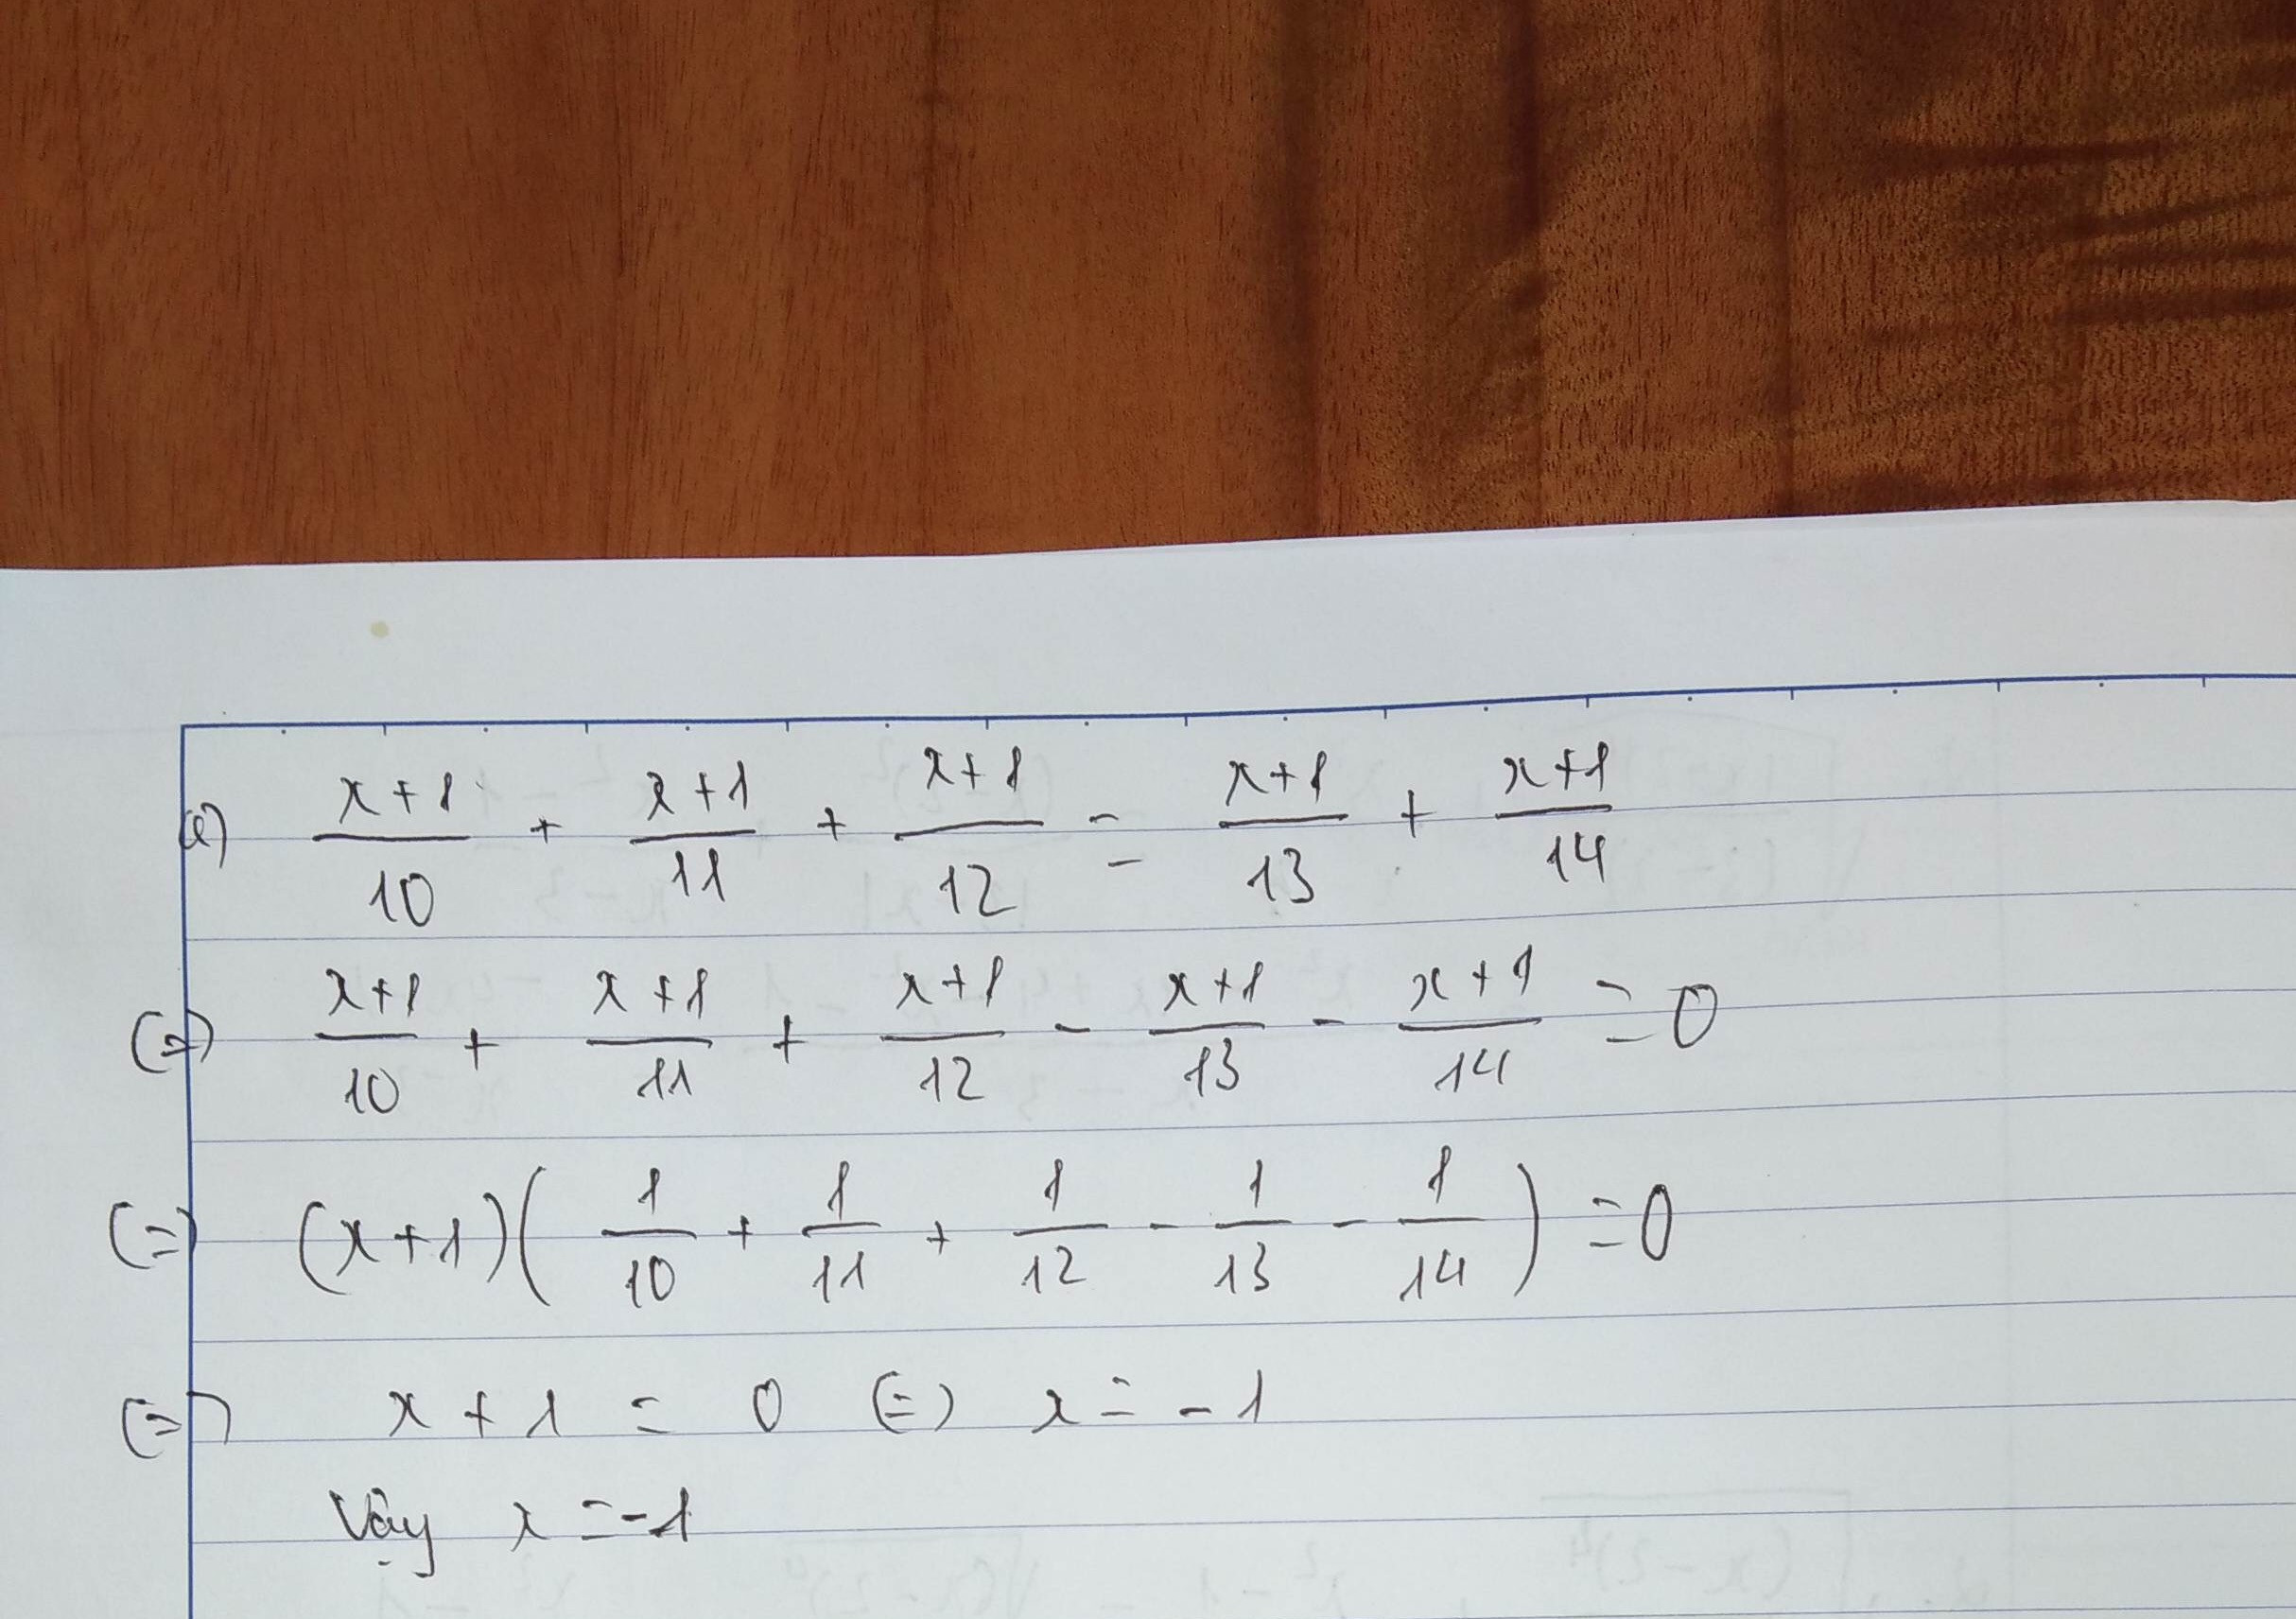 a) \frac{x+1}{10} + \frac{x+1}{11} + \frac{x+1}{12} = \frac{x+1}{13} + \frac{x+1}{14}
(=) \frac{x+1}{10} + \frac{x+1}{11} + \frac{x+1}{12} - \frac{x+1}{13} - \frac{x+1}{14} = 0
(=) (x+1)(\frac{1}{10} + \frac{1}{11} + \frac{1}{12} - \frac{1}{13} - \frac{1}{14}) = 0
(=) x + 1 = 0 (=) x = -1
Vậy x = -1